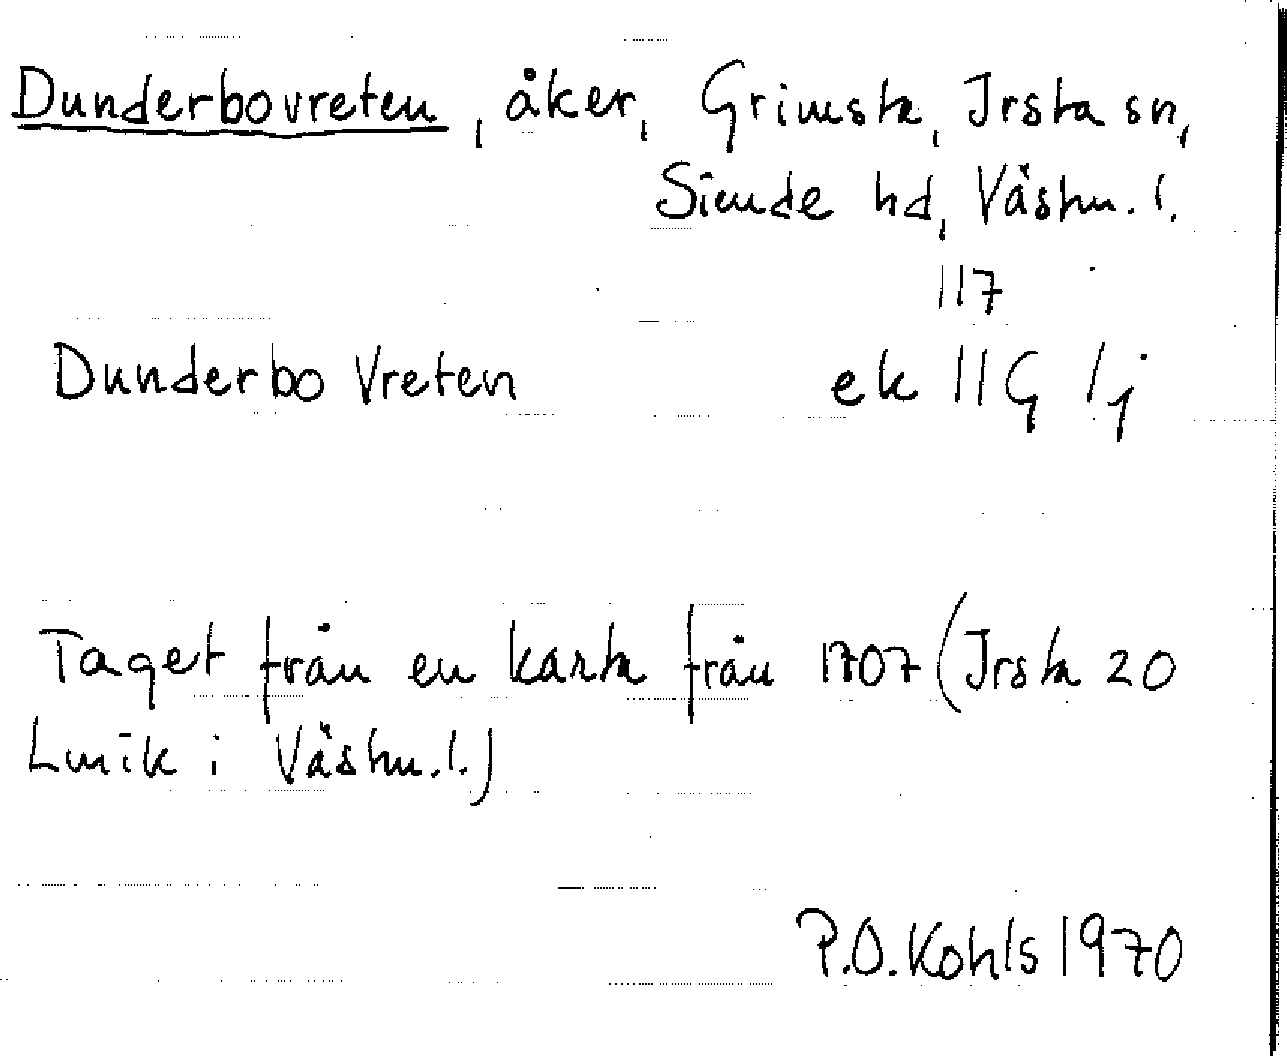 Dunderbovreten, åker, Grimsta, Irsta sn,
Siende hd, Västm. l.
117
Dunderbo Vreten ek 11G 1j
Taget från en karta från 1707 (Irsta 20
Lmik i Västm. l.)
P.O. Kohls 1970